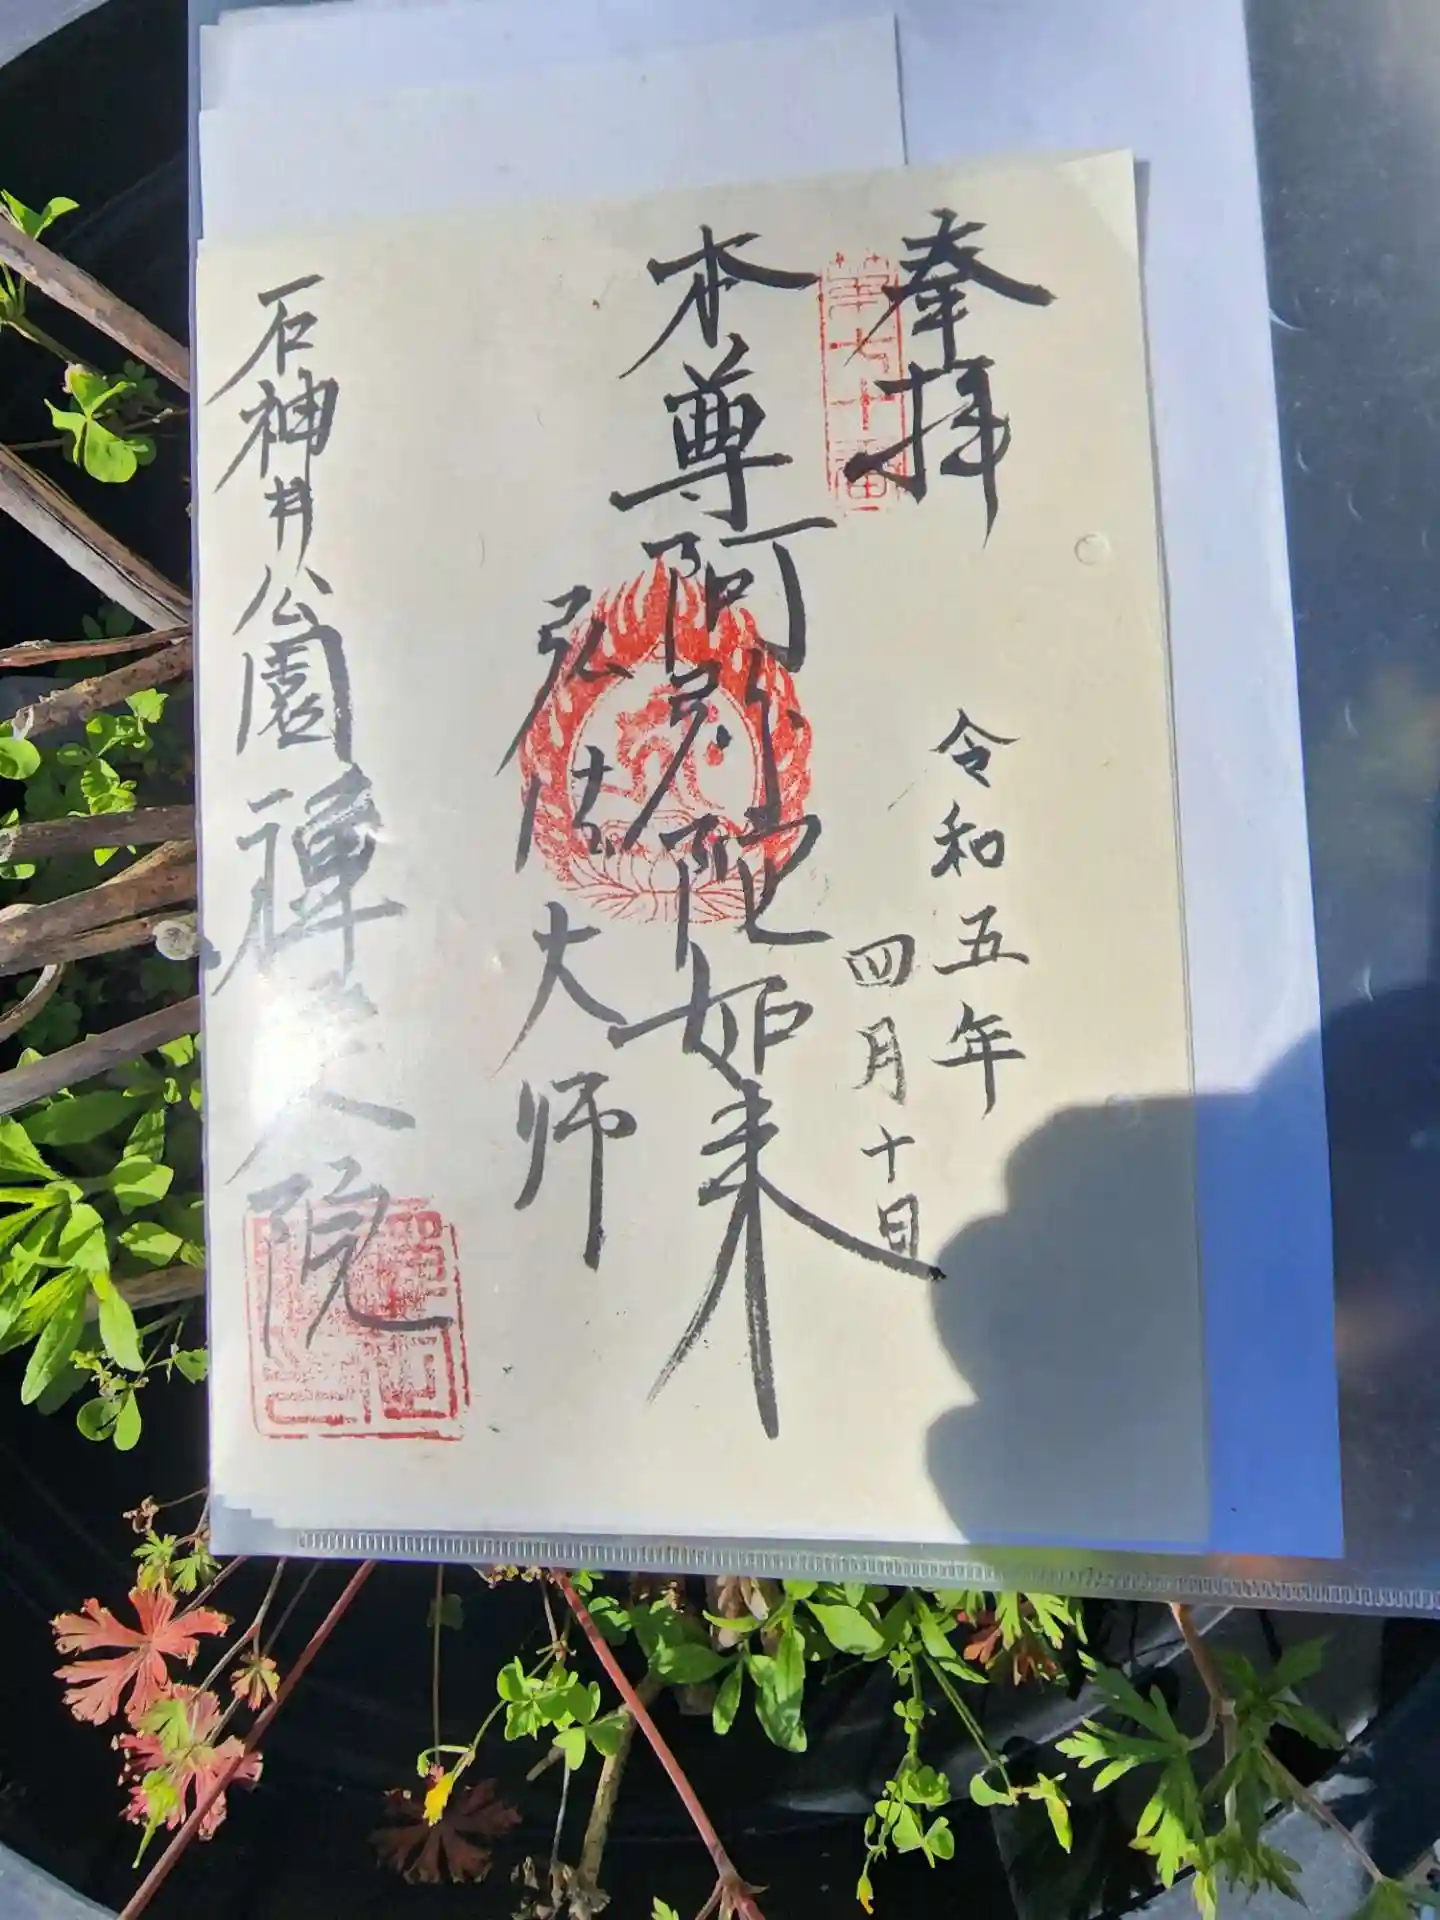 奉拝
第七十番
令和五年
四月十日
本尊阿弥陀如来
弘法大师
石神井公園
禅定院